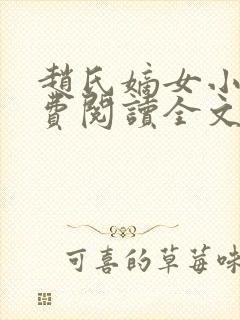 趙氏嫡女小
費閱讀全文
可喜的草莓味